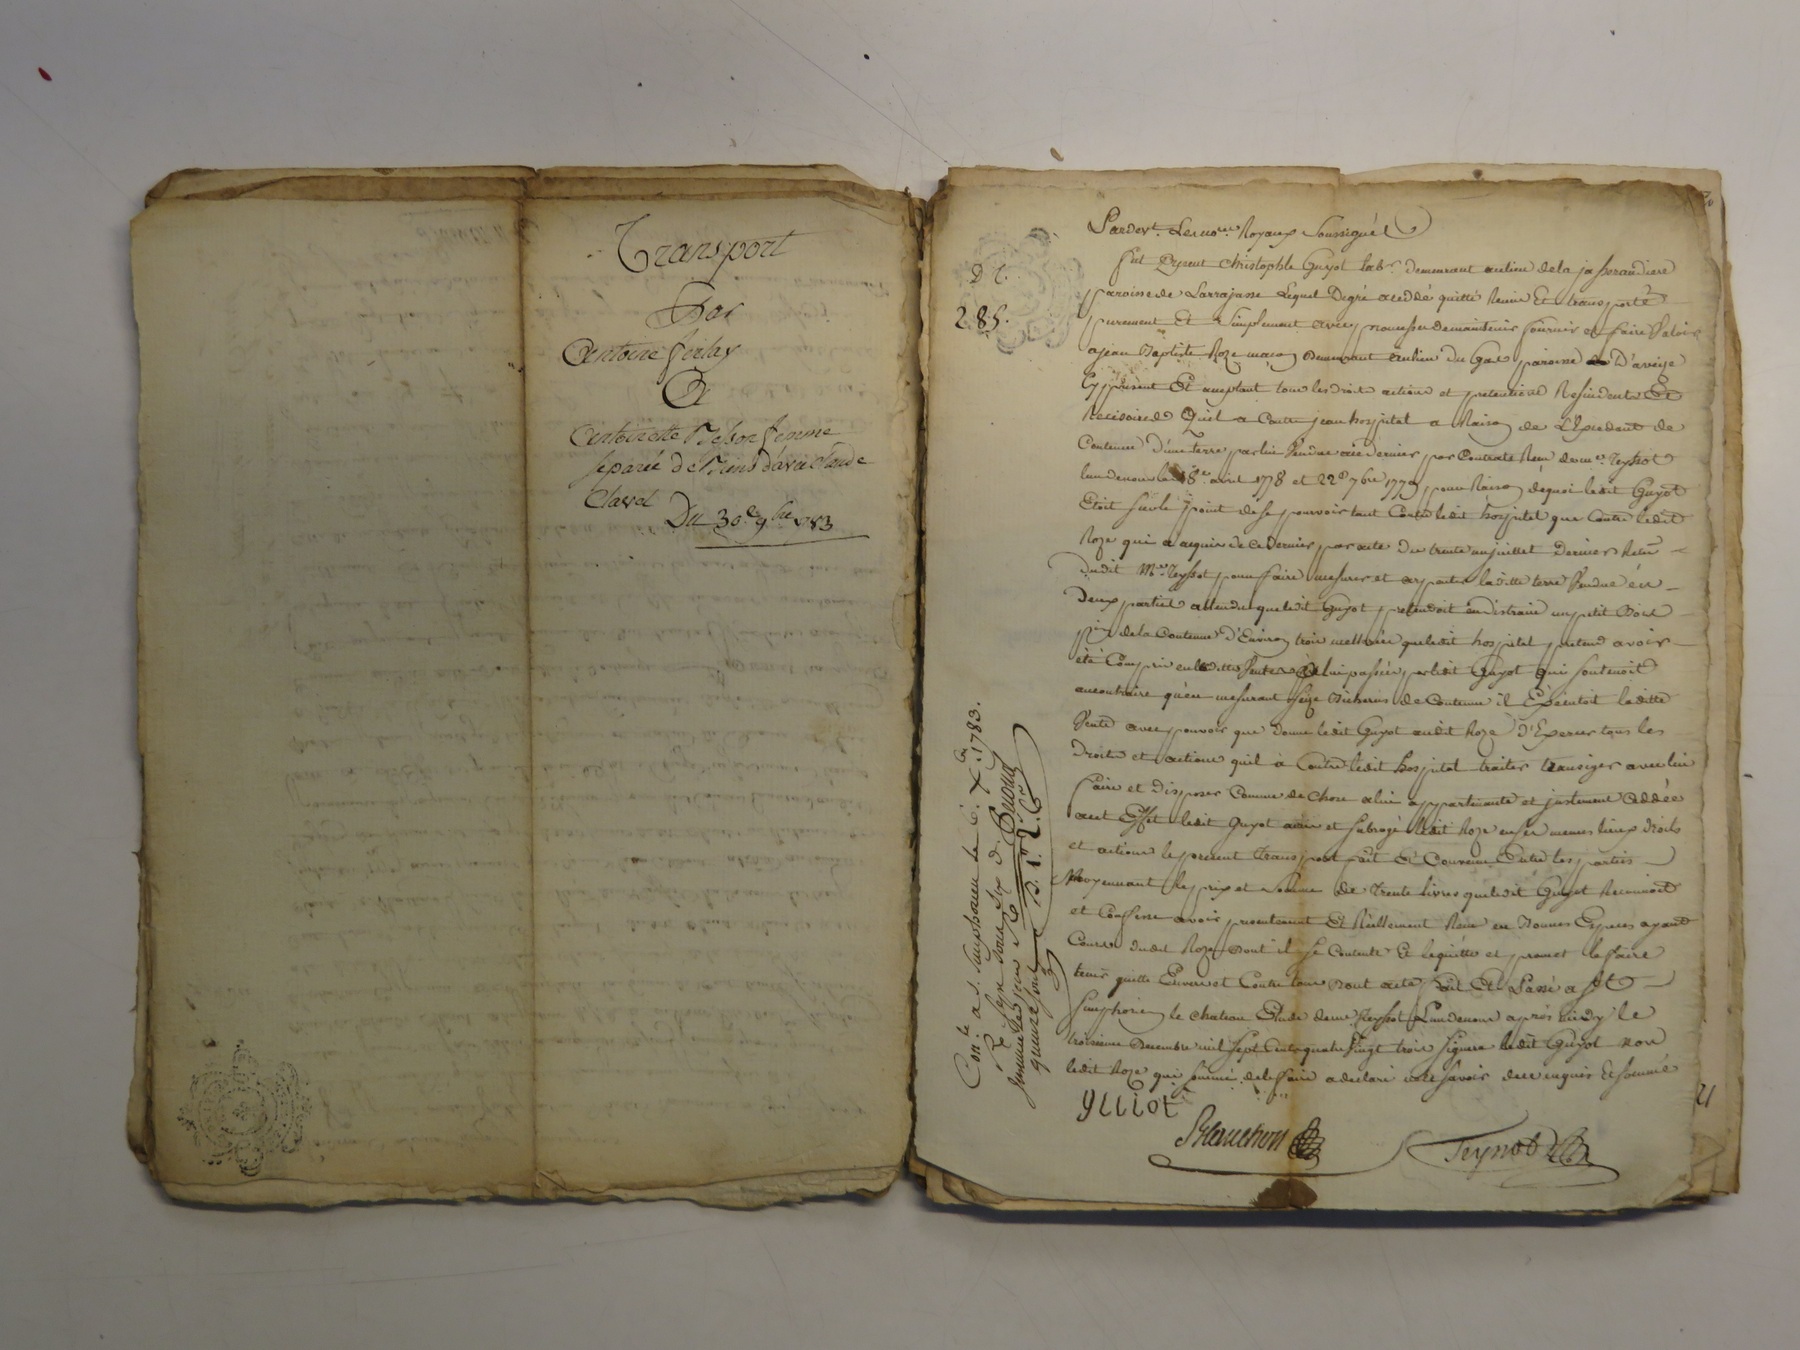 Transport
Par
Antoine ferlay
A
Antoinette Besson femme
separée de Biens d'avec Claude
Clavel
Du 30e 9bre 1783
D C.
285.
Pardevt. Les nores Royaux Soussignés
fut Present Christophle Guyot labr. demeurant au lieu de la jasserandiere
paroisse de Larrajasse Lequel De gré a ceddé quitté Remis Et transporté
purement Et simplement avec promesse de maintenir fournir et faire Valoir
a jean Baptiste Roze macon demeurant au lieu du Gas paroisse D'aveize
Cy present Et acceptant tous les droits actions et pretentions Resindents Et
Recisoires Quil a Contre jean hospital a Raison de L'Excedent de
Contenue D'une terre par lui Vendue a ce dernier par Contrats Recu dud me. Teyssot
lun de nous les 18e. avril 1778 et 22e 7bre 1779 pour Raison dequoi ledit Guyot
Etoit sur le point de se pourvoir tant Contre ledit hospital que Contre ledit
Roze qui a acquis de Ce Dernier par acte du trente un juillet Dernier Recu
dudit Me. Teyssot pour faire mesurer et arpenter laditte terre Vendue en
Deux parties attendu que ledit Guyot pretendoit en distraire un petit Bois
pin de la Contenue D'Environ trois mettérées que ledit hospital pretend avoir
été Compris en laditte Vente a lui passée par ledit Guyot qui soutenoit
au contraire qu'en mesurant seize Bicherées de Contenue il Executoit laditte
Vente avec pouvoir que donne ledit Guyot audit Roze D'Exercer tous les
Droits et actions quil a Contre ledit hospital traiter transiger avec lui
faire et Disposer Comme de chose a lui appartenante et justement Ceddée
a cet Effet ledit Guyot a mis et subrogé ledit Roze en ses memes lieux droits
et actions le present transport fait Et Convenu Entre les parties
Moyennant le prix et somme de trente livres que ledit Guyot Reconnoit
et Confesse avoir presentement Et Reellement Recu en Bonnes Especes ayant
Cours dudit Roze Dont il se Contente Et le quitte et promet le faire
tenir quitte Envers et Contre tous Dont acte fait Et Passé a St
simphorien le chateau Etude de me Teyssot Lun de nous apres midy le
troisieme Decembre mil sept Cents quatre Vingt trois signera ledit Guyot non
ledit Roze qui a declaré ne le savoir de ce enquis Et sommé
Con.lé a s. simphorien le 6. Xbre 1783.
Re. sept sous six d.
quinze sous
D. 1. 2. 6
gUiot
Blanchon
Teyssot
21